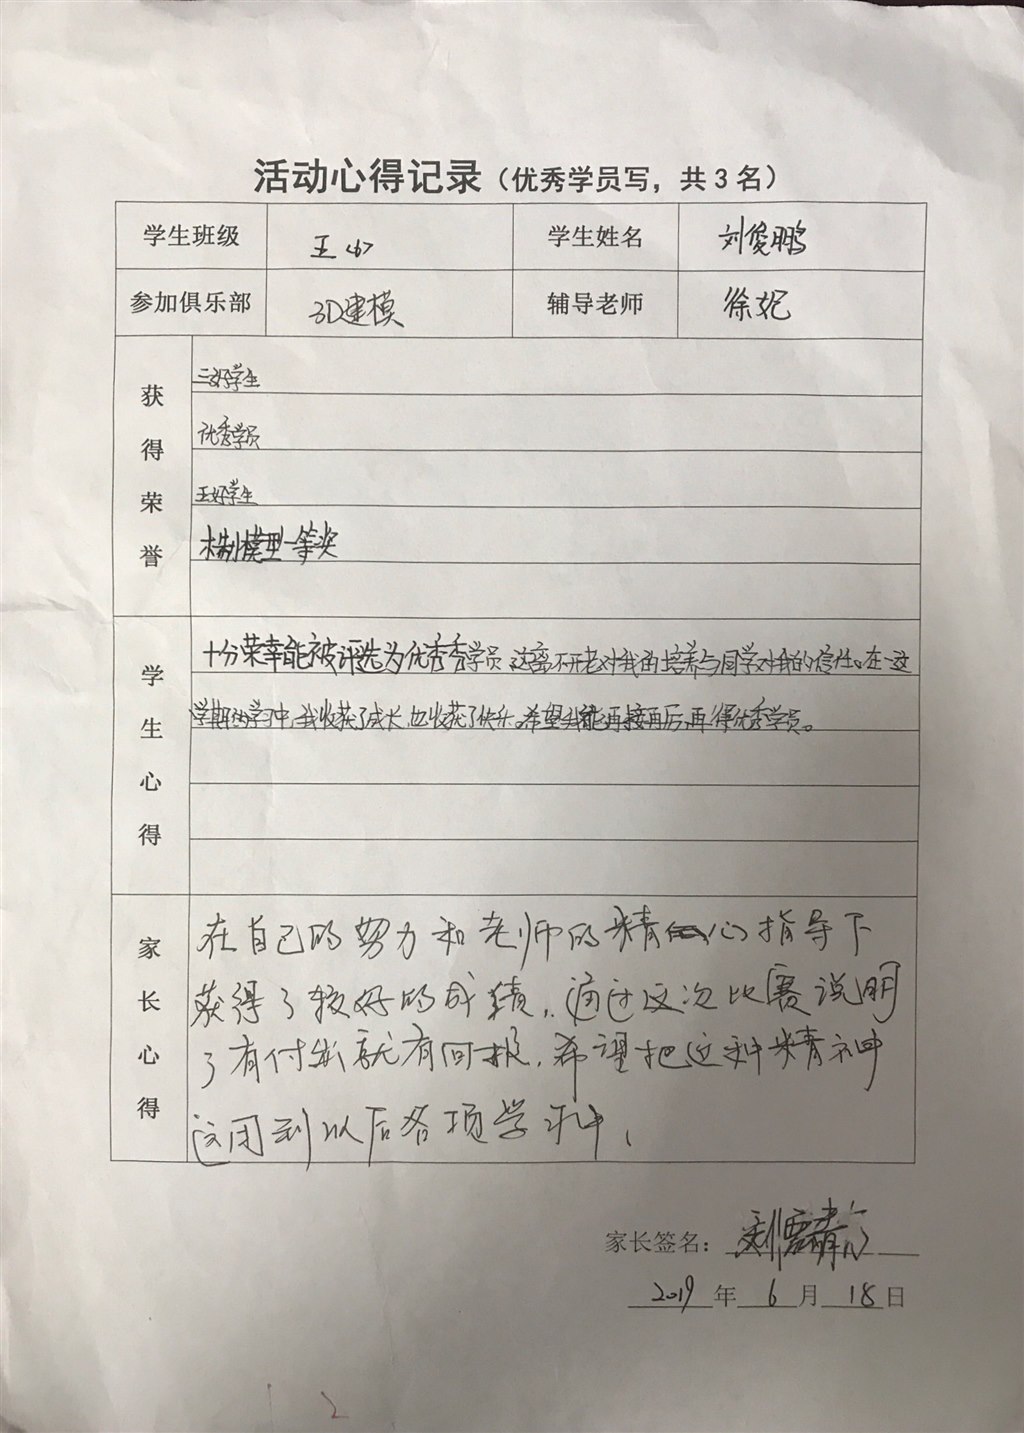 活动心得记录（优秀学员写，共3名）
学生班级 学生姓名 刘俊鹏
参加俱乐部 3D建模 辅导老师 徐妃
获得荣誉
三好学生
优秀学员
王好学生
木制模型一等奖
学生心得
十分荣幸能被评选为优秀秀学员，这离不开老对我的培养与同学对我的信任。在这
学期的学习中，我收获了成长，也收获了快乐。希望我能再接再厉，再得优秀学员。
家长心得
在自己的努力和老师的精心指导下
获得了较好的成绩，通过这次比赛说明
了有付出就有回报，希望把这种精神
运用到以后各项学习中，
家长签名：
2019年6月18日
2